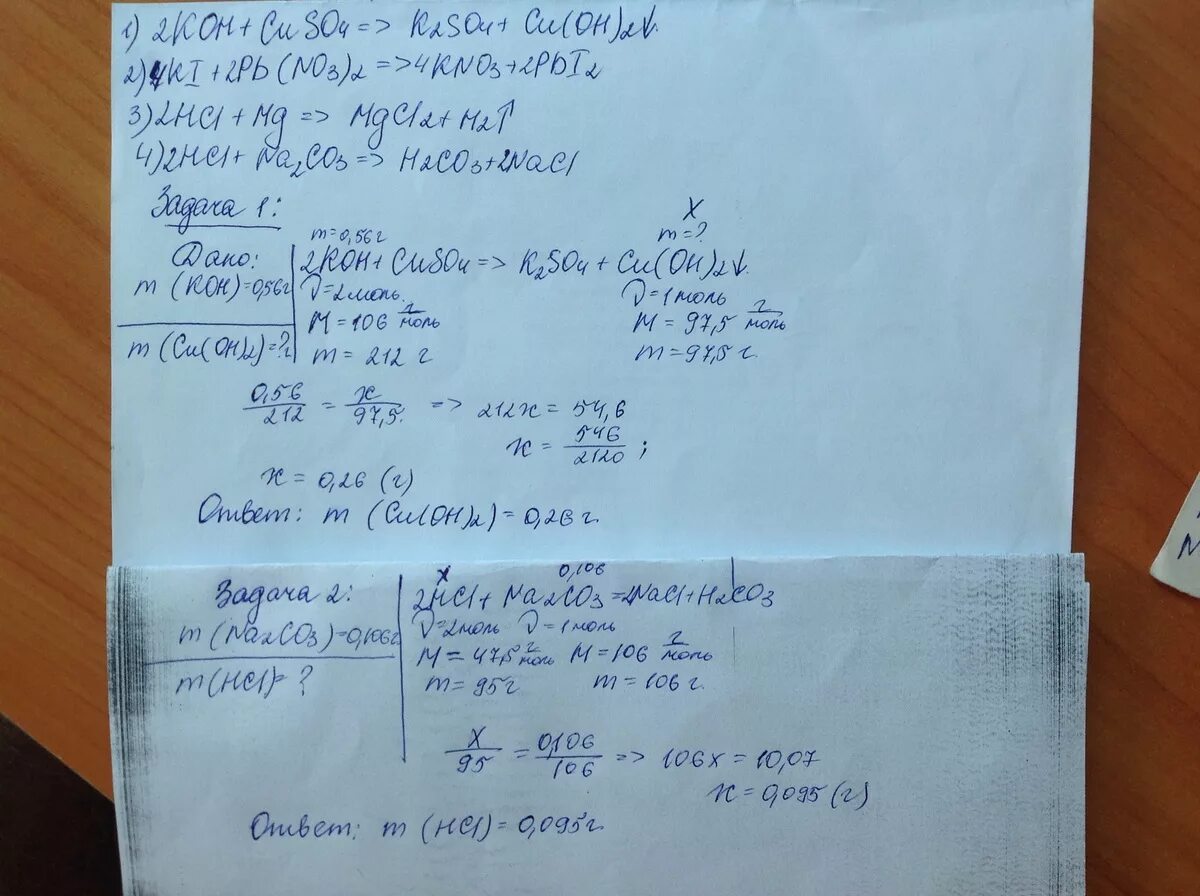 1) 2KOH + CuSO4 => K2SO4 + Cu(OH)2↓.
2) 4KI + 2Pb(NO3)2 => 4KNO3 + 2PbI2
3) 2HCl + Mg => MgCl2 + H2↑
4) 2HCl + Na2CO3 => H2CO3 + 2NaCl
Задача 1:
Дано:
m (KOH) = 0,56г
m (Cu(OH)2) = ? г
m = 0,56г
X
m = ?
2KOH + CuSO4 => K2SO4 + Cu(OH)2↓.
ν = 2 моль.
ν = 1 моль
M = 106 г/моль
M = 97,5 г/моль
m = 212 г
m = 97,5 г.
0,56/212 = x/97,5. => 212x = 54,6
x = 546/2120 ;
x = 0,26 (г)
Ответ: m (Cu(OH)2) = 0,26 г.
Задача 2:
m (Na2CO3) = 0,106г
m (HCl) = ?
X
0,106
2HCl + Na2CO3 = 2NaCl + H2CO3
ν = 2 моль ν = 1 моль
M = 47,5 г/моль M = 106 г/моль
m = 95 г m = 106 г.
X/95 = 0,106/106 => 106x = 10,07
x = 0,095 (г)
Ответ: m (HCl) = 0,095 г.